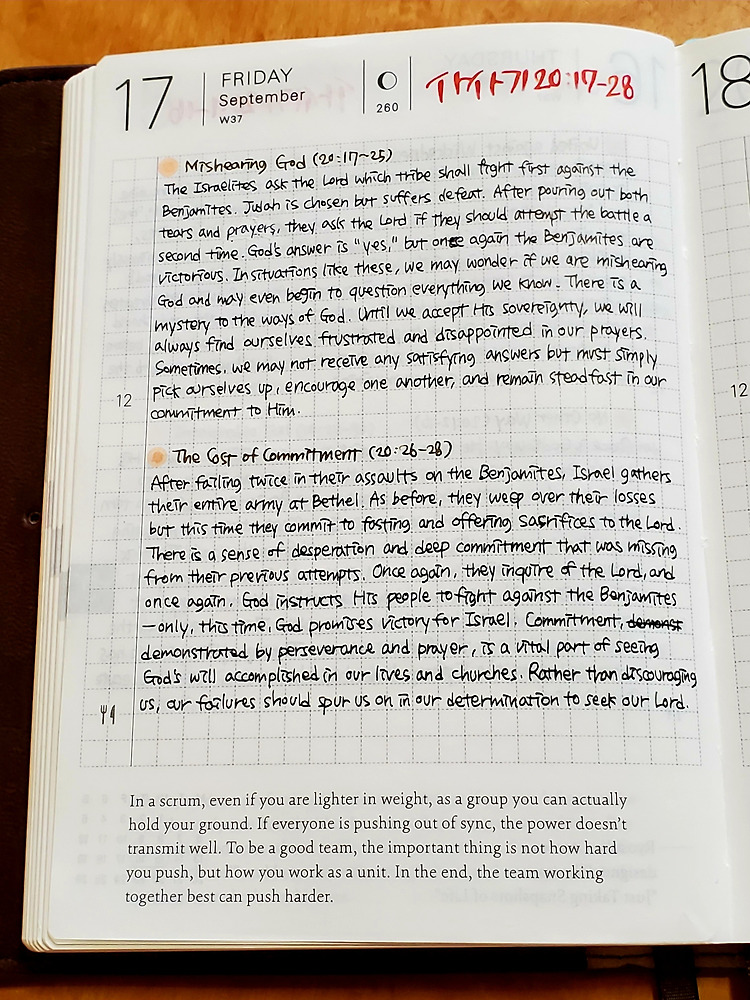 17
FRIDAY
September
W37
260
사사기 20:17-28
18
Mishearing God (20:17~25)
The Israelites ask the Lord which tribe shall fight first against the
Benjamites. Judah is chosen but suffers defeat. After pouring out both
tears and prayers, they ask the Lord if they should attempt the battle a
second time. God's answer is "yes," but once again the Benjamites are
victorious. In situations like these, we may wonder if we are mishearing
God and may even begin to question everything we know. There is a
mystery to the ways of God. Until we accept His sovereignty, we will
always find ourselves frustrated and disappointed in our prayers.
Sometimes, we may not receive any satisfying answers but must simply
pick ourselves up, encourage one another, and remain steadfast in our
commitment to Him.
12
12
The Cost of Commitment (20:26-28)
After failing twice in their assaults on the Benjamites, Israel gathers
their entire army at Bethel. As before, they weep over their losses
but this time they commit to fasting and offering sacrifices to the Lord.
There is a sense of desperation and deep commitment that was missing
from their previous attempts. Once again, they inquire of the Lord, and
once again, God instructs His people to fight against the Benjamites
—only, this time, God promises victory for Israel. Commitment, demonst
demonstrated by perseverance and prayer, is a vital part of seeing
God's will accomplished in our lives and churches. Rather than discouraging
us, our failures should spur us on in our determination to seek our Lord.
In a scrum, even if you are lighter in weight, as a group you can actually
hold your ground. If everyone is pushing out of sync, the power doesn't
transmit well. To be a good team, the important thing is not how hard
you push, but how you work as a unit. In the end, the team working
together best can push harder.